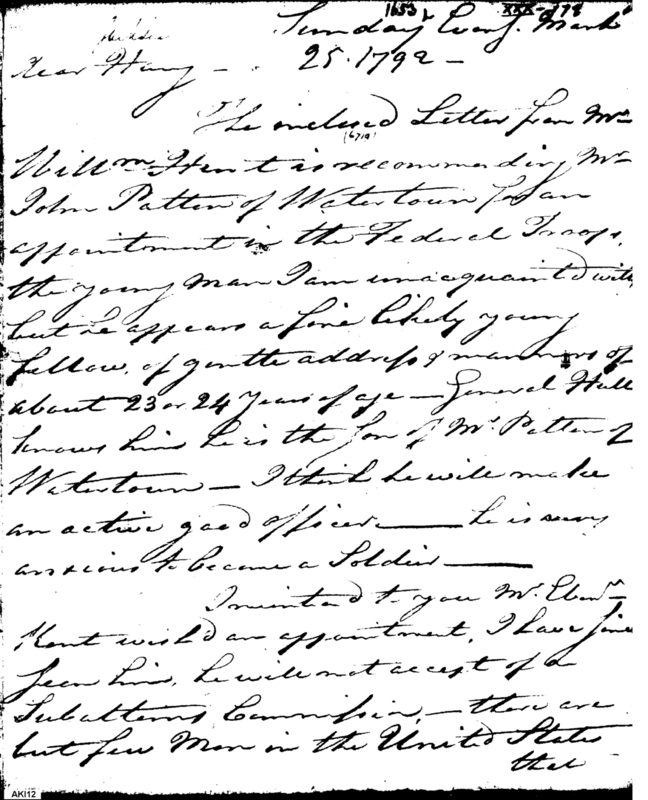 1653 XXX-178
Sunday Eveng. March
25. 1792 —
Dear Harry —
The inclosed Letter from Mr
(6719)
Willm Hunt is recommending Mr
John Patten of Watertown for an
appointment in the Federal Troops,
the young Man I am unacquainted with
but he appears a fine likely young
fellow, of gentle address & manners of
about 23 or 24 Years of age — General Hull
knows him he is the Son of Mr. Patten of
Watertown — I think he will make
an active good officer — he is very
anxious to become a Soldier —
I mention'd to you Mr. Ebenr
Kent wish'd an appointment, I have since
seen him, he will not accept of a
Subalterns Commission, — there are
but few Men in the United States
that
AKI12